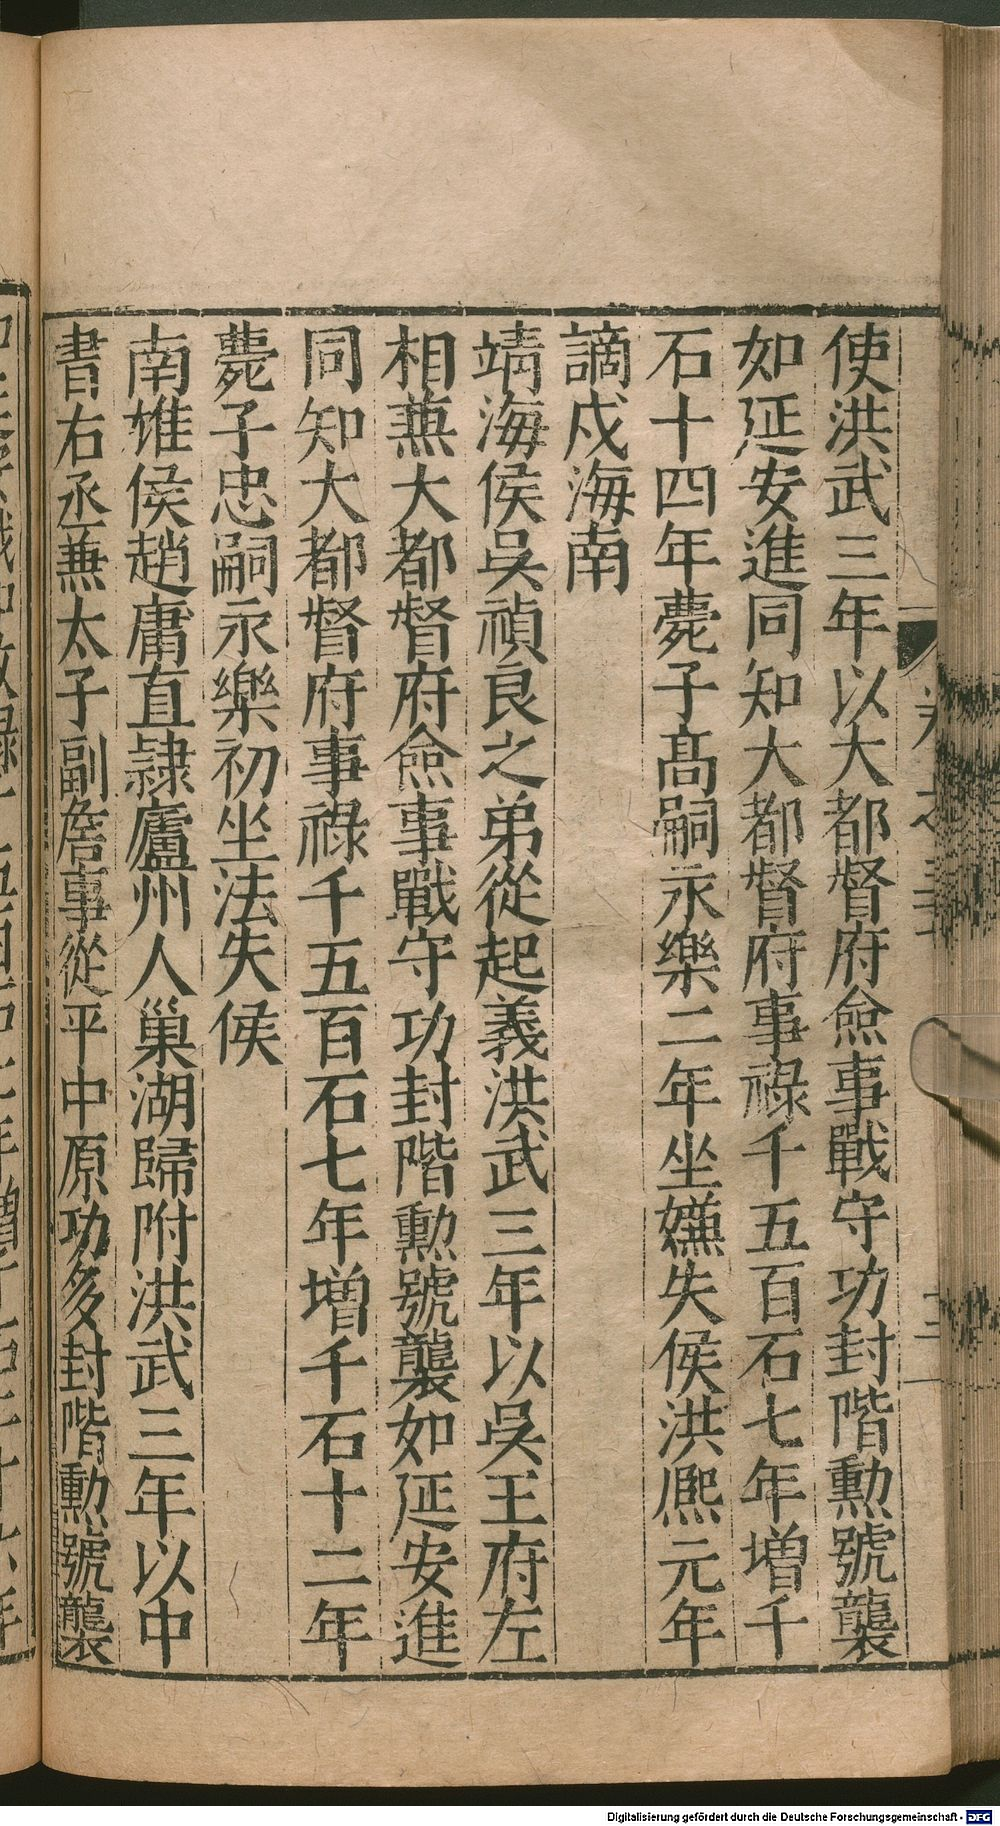 使洪武三年以大都督府僉事戰守功封階勳號襲
如延安進同知大都督府事祿千五百石七年增千
石十四年薨子高嗣永樂二年坐嫌失侯洪熈元年
謫戍海南
靖海侯吳禎良之弟從起義洪武三年以吳王府左
相兼大都督府僉事戰守功封階勳號襲如延安進
同知大都督府事祿千五百石七年增千石十二年
薨子忠嗣永樂初坐法失侯
南雄侯趙庸直隷廬州人巢湖歸附洪武三年以中
書右丞兼太子副詹事從平中原功多封階勳號襲
Digitalisierung gefördert durch die Deutsche Forschungsgemeinschaft - DFG